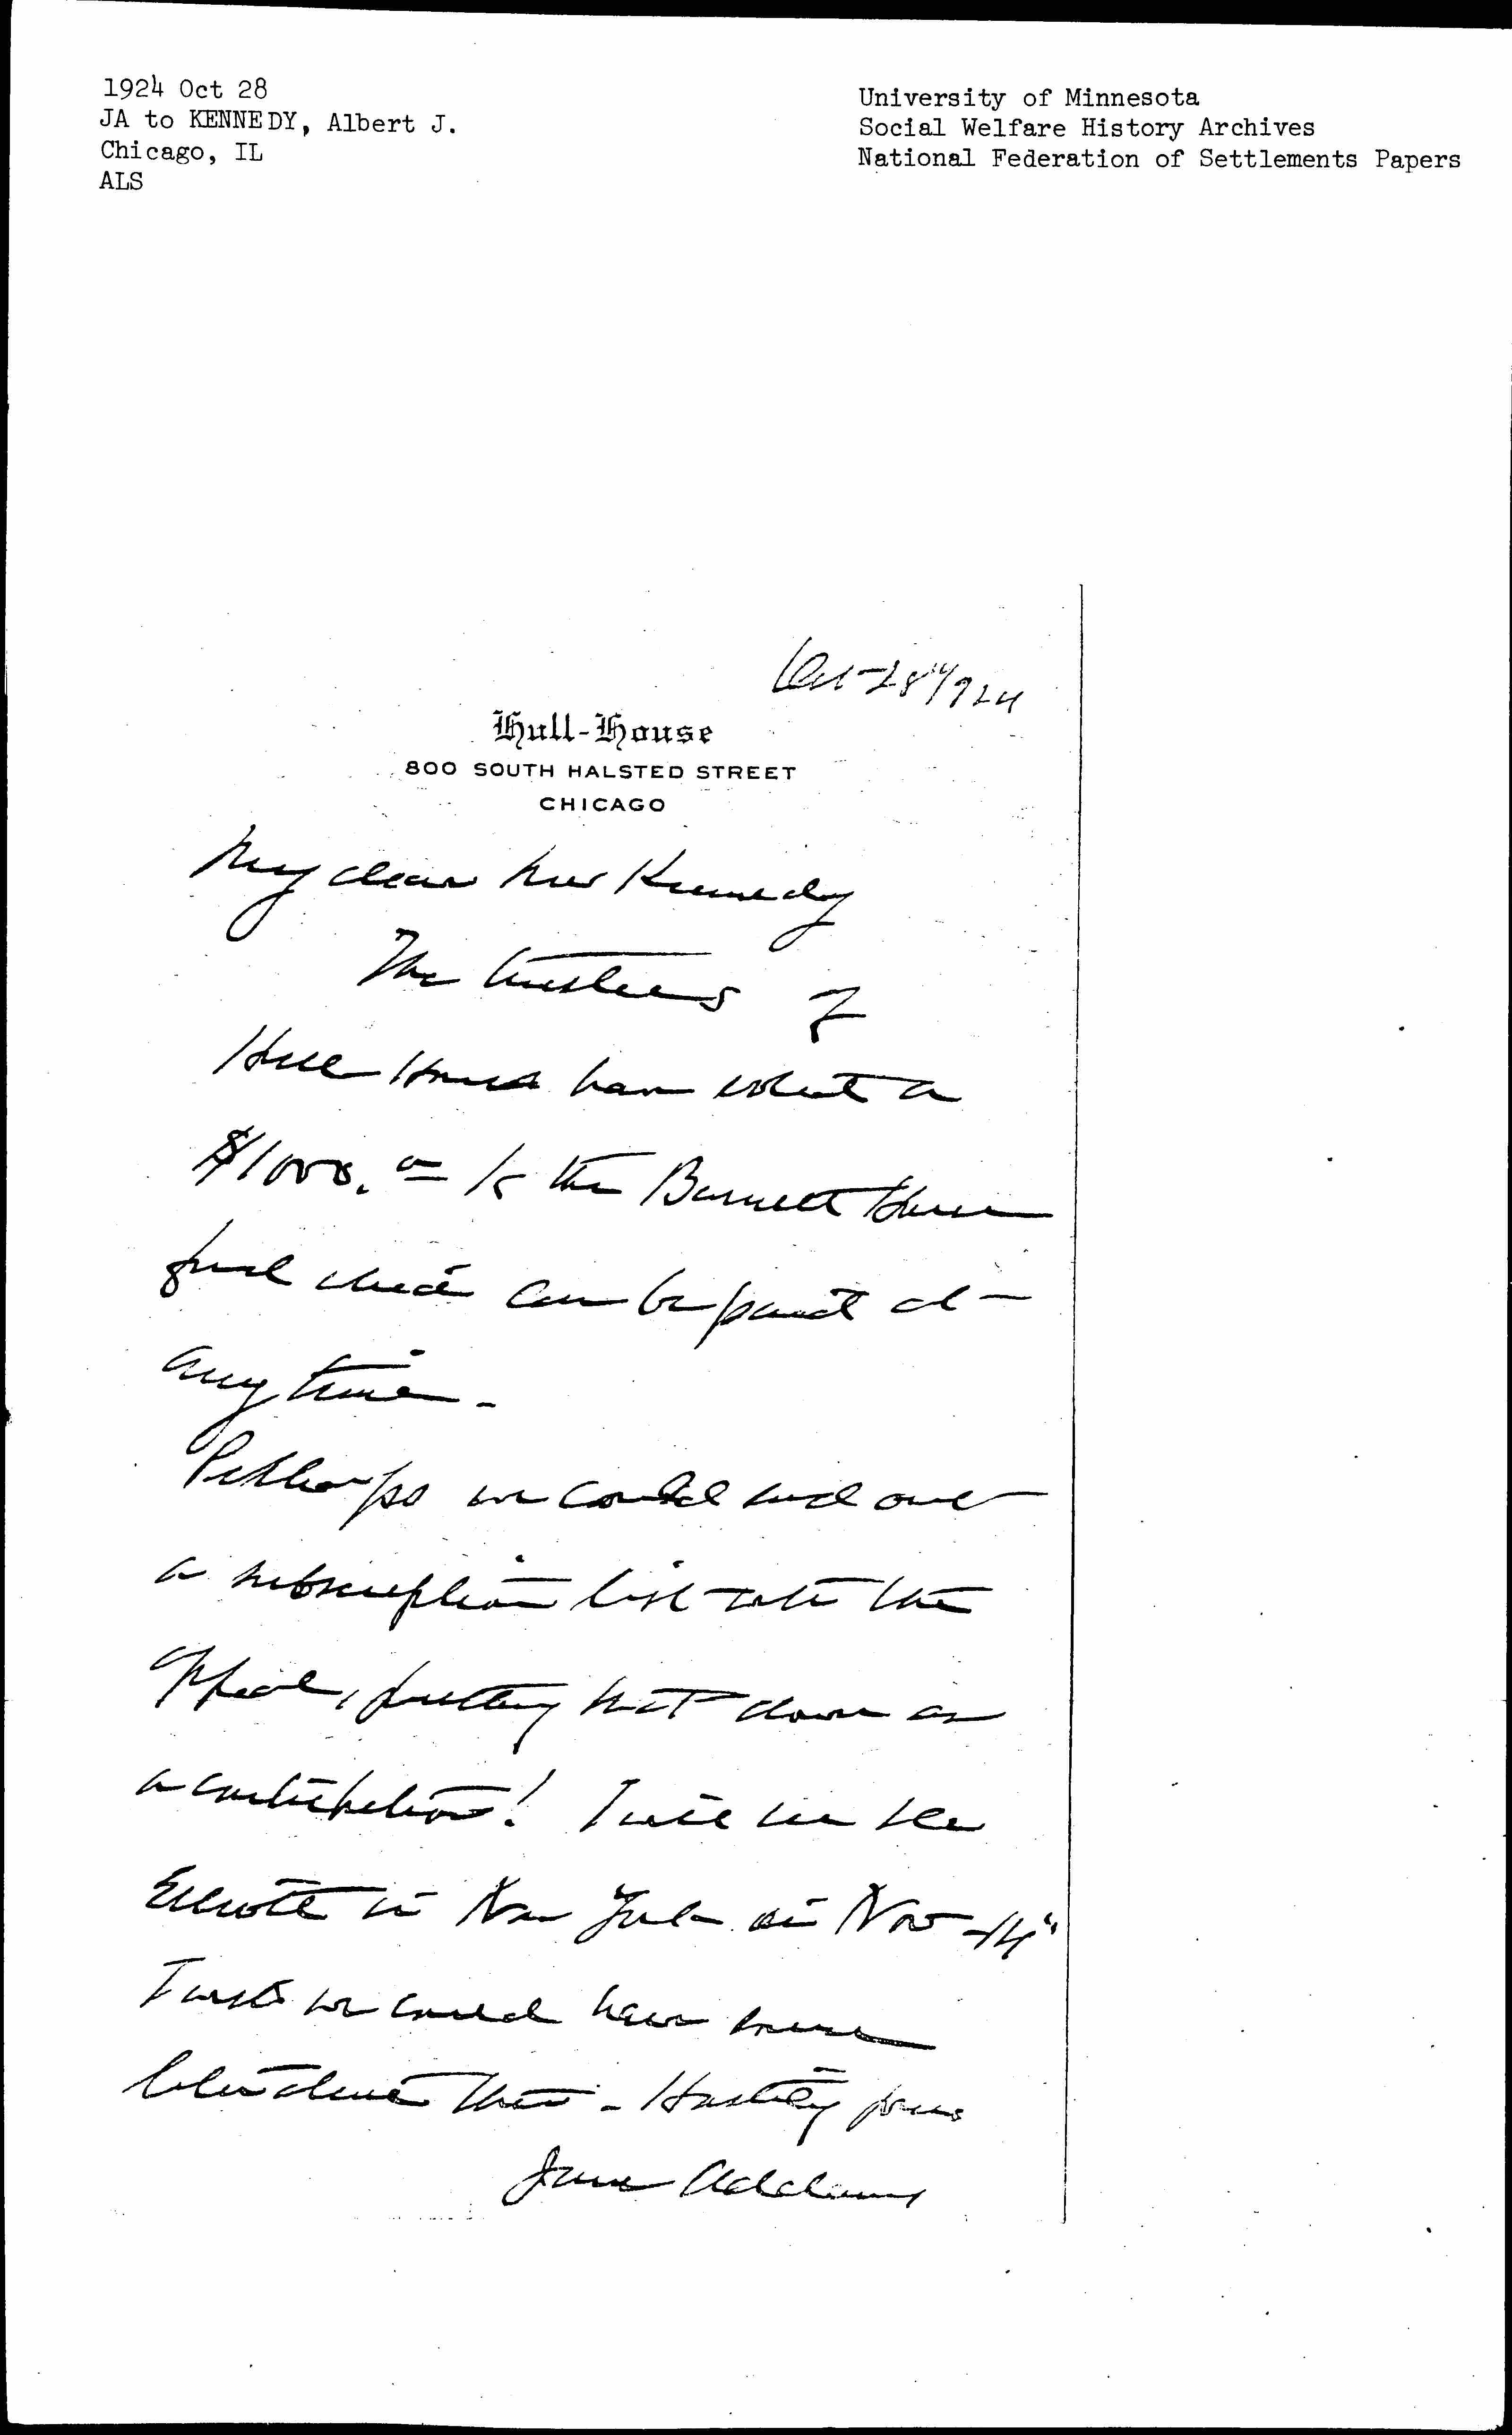 1924 Oct 28
JA to KENNEDY, Albert J.
Chicago, IL
ALS
University of Minnesota
Social Welfare History Archives
National Federation of Settlements Papers
Oct 28" 1924
Hull-House
800 SOUTH HALSTED STREET
CHICAGO
My dear Mr Kennedy
The trustees of
Hull House have a
$1000.00 to the Barnett House
fund which can be paid at
any time -
Perhaps we could send out
a subscription list with the
appeal, putting that down as
a contribution! I will see
in New York on Nov 14"
I wish we could have
then - Hastily yours
Jane Addams